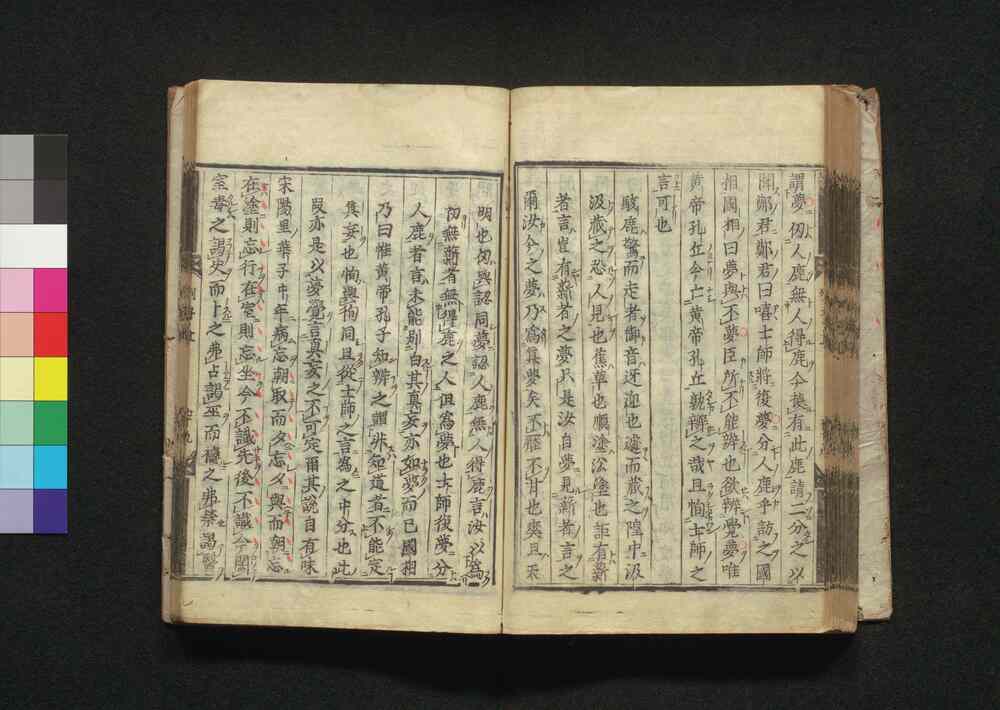 謂夢仞人鹿無人得鹿今據有此鹿請二分之以
聞鄭君鄭君曰嘻士師將復夢分人鹿乎訪之國
相國相曰夢與不夢臣所不能辨也欲辨覺夢唯
黃帝孔丘今亡黃帝孔丘孰辨之哉且恂士師之
言可也
駭鹿驚而走者御音迓迎也遽而藏之隍中汲
汲藏之恐人見也蕉草也順塗沿塗也詎有薪
者言豈有薪者之夢只是汝自夢見薪者言之
爾汝今之夢乃為真夢矣不厭不甘也爽旦天
明也仞與認同夢認人鹿無人得鹿言汝以為
仞無薪者無得鹿之人但為夢也士師復夢分
人鹿者言未能別白其真妄亦如夢而已國相
乃曰惟黃帝孔子知辨之謂非知道者不能定
真妄也恂與徇同且從士師之言為之中分也此
段亦是以夢覺言真妄之不可定爾其說自有味
宋陽里華子中年病忘朝取而夕忘夕與而朝忘
在塗則忘行在室則忘坐今不識先後不識今闔
室毒之謁史而卜之弗占謁巫而禱之弗禁謁醫